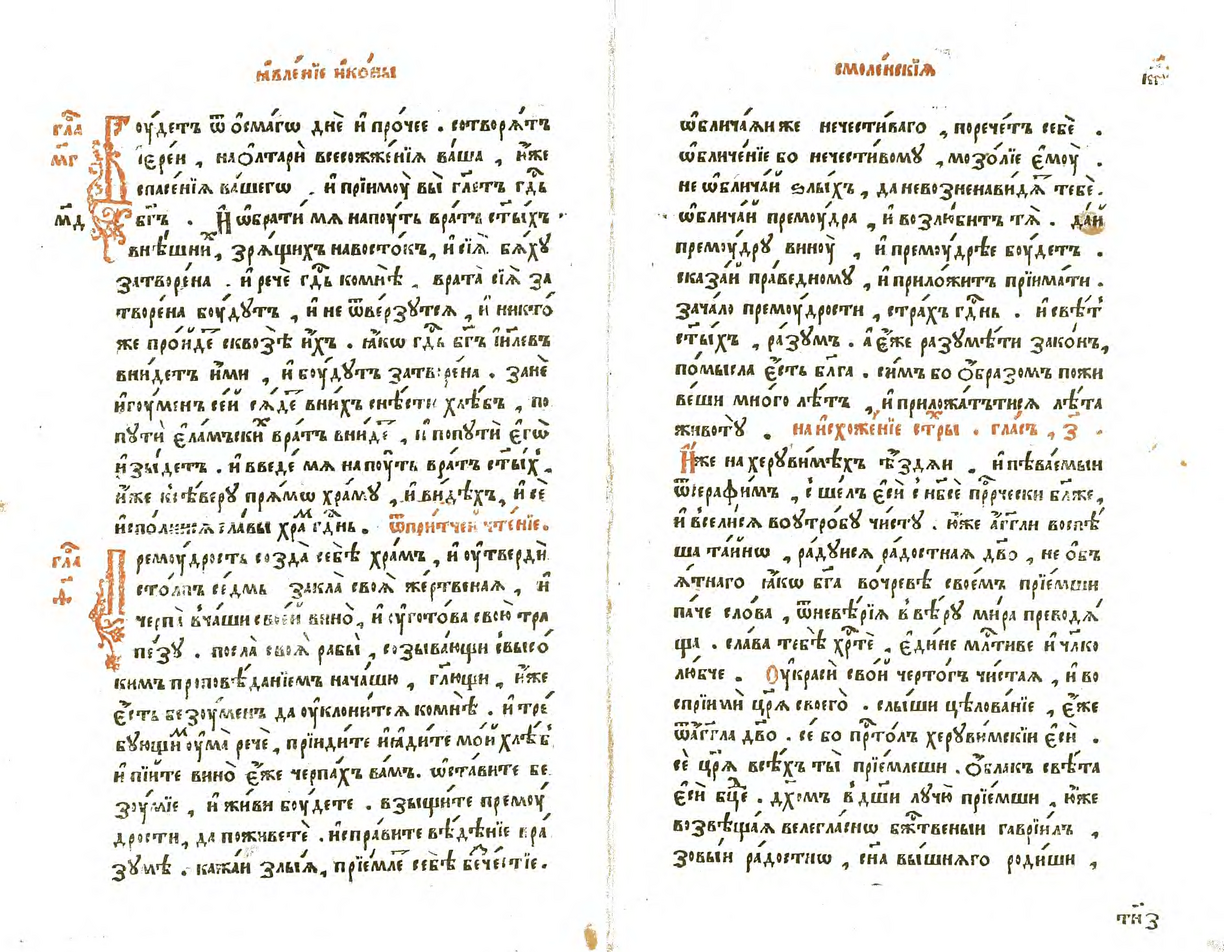 ꙗ҆вле́нїе и҆ко́ны
гла
мг
Бꙋ́детъ ѿ ѻ҆сма́гѡ днѐ и҆ про́чее . сотворѧ́тъ
їере́и , на ѻ҆лтарѝ всесожже́нїѧ ва́ша , и҆́же
спасе́нїѧ ва́шегѡ . и҆ прїимꙋ̀ вы̀ гл҃етъ гдⷭ҇ь
мд
бг҃ъ . И҆ ѡ҆брати́ мѧ на пꙋ́ть вра́тъ ст҃ы́хъ
внѣ́шнихъ , зрѧ́щихъ на восто́къ , и҆ сїѧ̀ бѧ́хꙋ
затворе́на . и҆ речѐ гдⷭ҇ь ко мнѣ̀ , врата̀ сїѧ̀ за
творе́на бꙋ́дꙋтъ , и҆ не ѿве́рзꙋтсѧ , и҆ никто́
же про́йде сквозѣ̀ и҆́хъ . ꙗ҆́кѡ гдⷭ҇ь бг҃ъ і҆и҃левъ
вни́детъ и҆́ми , и҆ бꙋ́дꙋтъ затворе́на . занѐ
и҆гꙋ́менъ се́й сѧ́де в ни́хъ снѣ́сти хлѣ́бъ , по
пꙋтѝ є҆ла́мъски вра́тъ вни́де , и҆ по пꙋтѝ є҆гѡ̀
и҆зы́детъ . и҆ введе́ мѧ на пꙋ́ть вра́тъ ст҃ы́хъ .
и҆́же к сѣ́верꙋ прѧ́мѡ хра́мꙋ , и҆ ви́дѣхъ , и҆ сѐ
и҆спо́лнисѧ сла́вы хра́мъ гдⷭ҇нь . ѿ при́тчей чте́нїе .
гла
ѳ
Премꙋ́дрость созда̀ себѣ̀ хра́мъ , и҆ ᲂу҆твердѝ
сто́лпъ се́дмь закла̀ своѧ̀ же́ртвеная , и҆
черпа̀ в ча́ши свое́й вино̀ , и҆ ᲂу҆гото́ва свою̀ тра
пе́зꙋ . посла̀ своѧ̀ рабы̀ , созыва́ющи с высо́
кимъ проповѣ́данїемъ на ча́шю , гл҃ющи , и҆́же
є҆́сть безꙋ́менъ да ᲂу҆клони́тсѧ ко мнѣ̀ . и҆ тре́
бꙋющимъ ᲂу҆ма̀ речѐ , прїиди́те и҆ ꙗ҆ди́те мо́й хлѣ́бъ
и҆ пі́йте вино̀ є҆́же черпа́хъ ва́мъ . ѡ҆ста́вите бе
зꙋ́мїе , и҆ жи́ви бꙋ́дете . взыщи́те премꙋ́
дрости , да поживетѐ . и҆спра́вите вѣ́дѣнїе в ра́
зꙋмѣ . кажа́й злы́ѧ , прїе́мле себѣ̀ безче́стїе .
смоле́нскїѧ
ѡ҆блича́ѧй же нечести́ваго , порече́тъ себѐ .
ѡ҆бличе́нїе бо нечести́вомꙋ , мозо́лїе є҆мꙋ̀ .
не ѡ҆блича́й ѕлы́хъ , да не возненави́дѧтъ тебѐ .
ѡ҆блича́й премꙋ́дра , и҆ возлю́битъ тѧ̀ . да́й
премꙋ́дрꙋ винꙋ̀ , и҆ премꙋдрѣ́е бꙋ́детъ .
сказа́й пра́ведномꙋ , и҆ приложи́тъ прїима́ти .
зача́ло премꙋ́дрости , стра́хъ гдⷭ҇нь . и҆ свѣ́тъ
ст҃ы́хъ , ра́зꙋмъ . а є҆́же разꙋмѣ́ти зако́нъ ,
по́мысла є҆́сть бл҃га . си́мъ бо ѻ҆́бразомъ пожи
ве́ши мно́го лѣ́тъ , и҆ приложа́тътисѧ лѣ́та
животꙋ̀ . на и҆схожде́нїе стⷯры . гла́съ , з҃ .
И҆́же на херꙋви́мѣхъ ѣ҆́здѧи . и҆ пѣва́емыи
ѿ серафи́мъ , сше́лъ є҆сѝ с нб҃сѐ прⷪ҇рчески бл҃же ,
и҆ всели́сѧ во ᲂу҆тро́бꙋ чи́стꙋ . ю҆́же а҆́гг҃ли воспѣ́
ша та́йнѡ , ра́дꙋисѧ ра́достная дв҃о , не ѻ҆бъ
ѧ҆́тнаго ꙗ҆́кѡ бг҃а во чре́вѣ свое́мъ прїе́мши
па́че сло́ва , ѿ невѣ́рїѧ в вѣ́рꙋ ми́ра преводѧ́
ща . сла́ва тебѣ̀ хрⷭ҇тѐ , є҆ди́не млⷭ҇тиве и҆ чл҃ко
лю́бче . Оу҆краси́ сво́й черто́гъ чи́стая , и҆ во
спрїимѝ цр҃ѧ̀ своего̀ . слы́ши цѣлова́нїе , є҆́же
ѿ а҆́гг҃ла дв҃о . се́ бо прⷭ҇то́лъ херꙋви́мскїи є҆сѝ .
се́ цр҃ѧ̀ всѣ́хъ ты̀ прїе́млеши . ѻ҆́блакъ свѣ́та
є҆сѝ бц҃е . дх҃омъ в дш҃и лꙋчю̀ прїе́мши , ю҆́же
возвѣща́ѧ велегла́снѡ бжⷭ҇твеныи гаврїи́лъ ,
зовы́и ра́достнѡ , сн҃а вы́шнѧго роди́ши ,
тн҃з